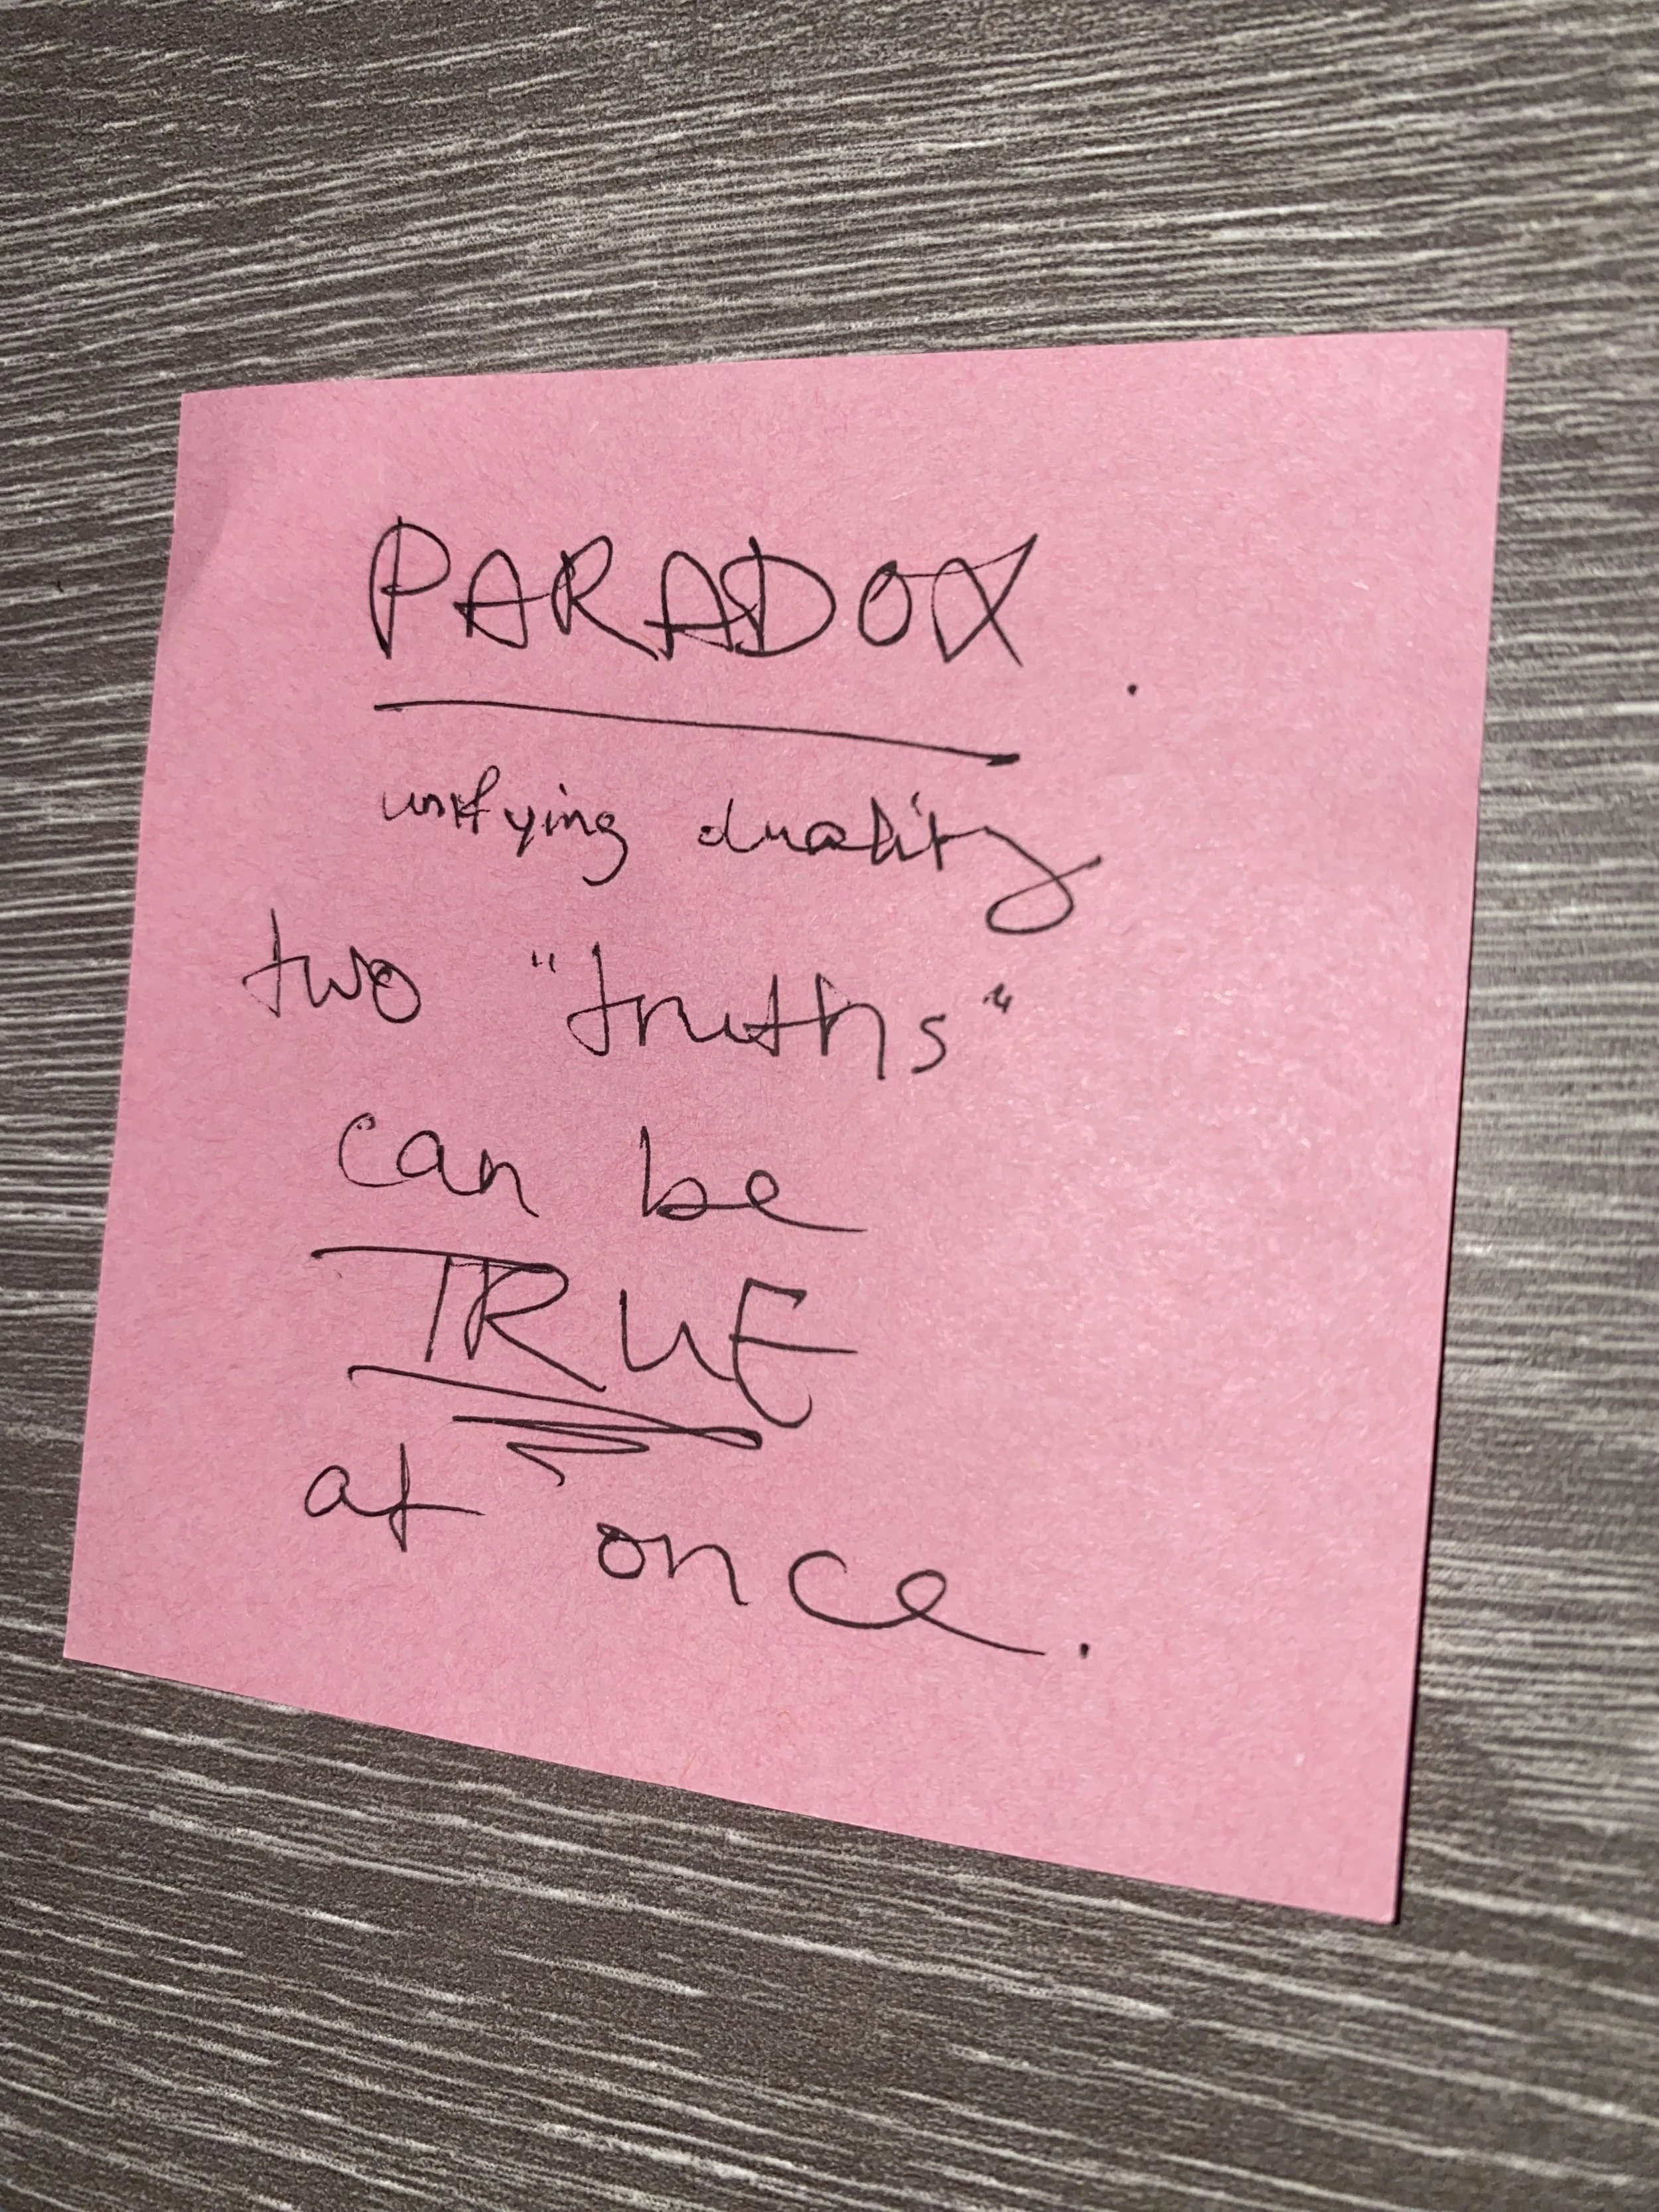 PARADOX
unifying duality
two "truths"
can be
TRUE
at once.